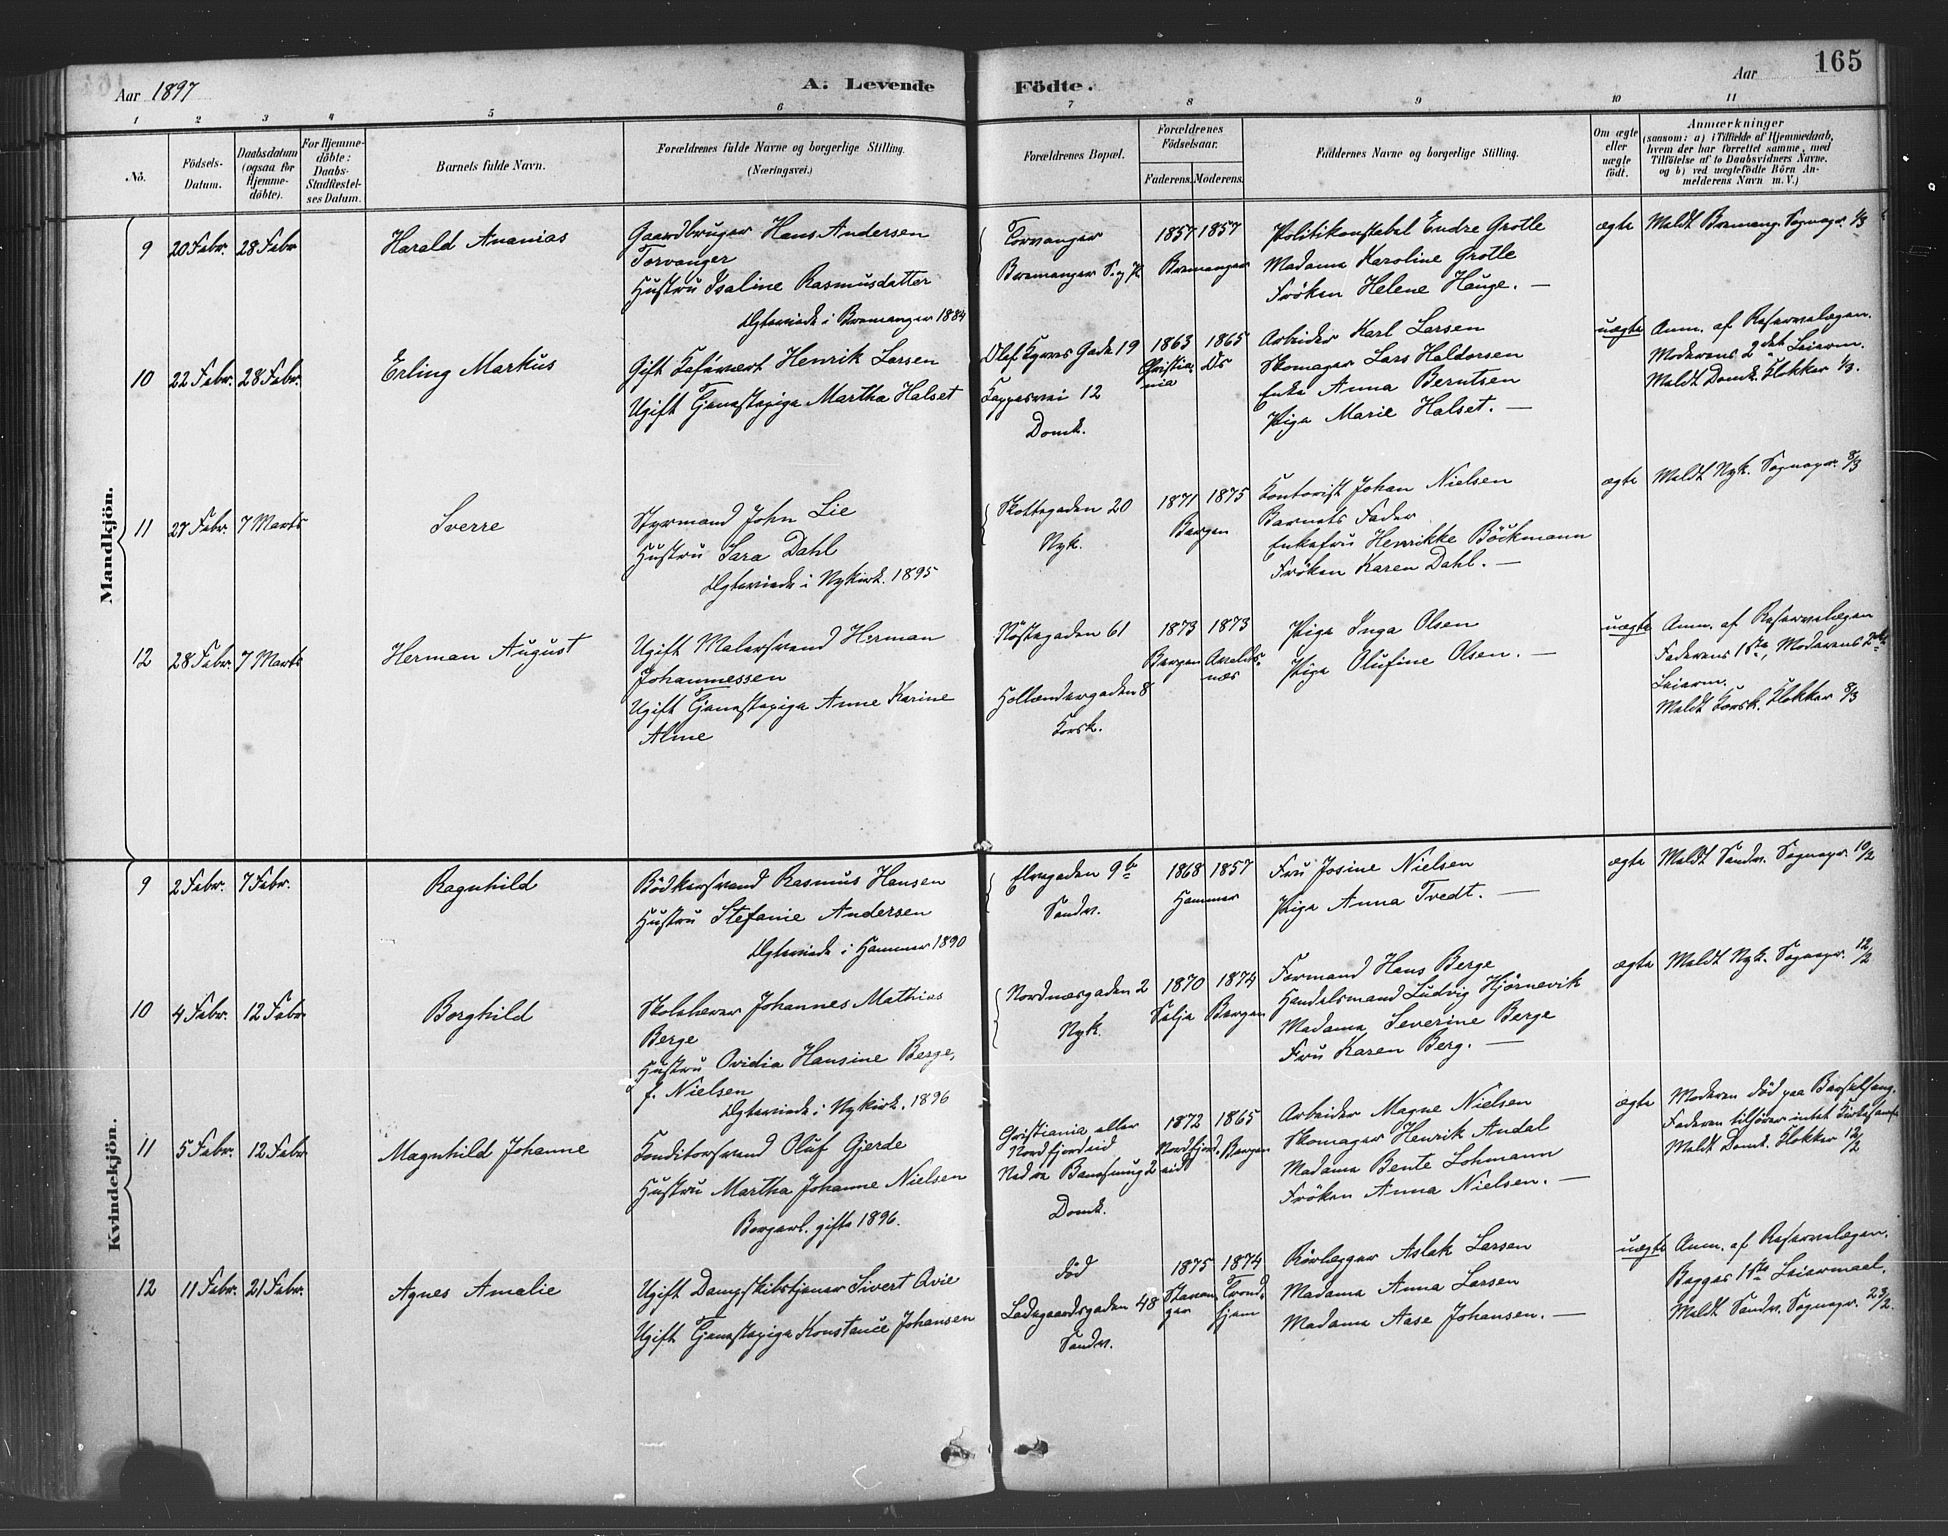 165
Aar 1897
A. Levende
Födte.
Aar
1
2
3
4
5
6
7
8
9
10
11
No.
Födsels-
Datum.
Daabsdatum
(ogsaa for
Hjemme-
döbte).
For Hjemme-
döbte:
Daabs-
Stadfæstel-
ses Datum.
Barnets fulde Navn.
Forældrenes fulde Navne og borgerlige Stilling.
(Næringsvei.)
Forældrenes Bopæl.
Forældrenes
Födselsaar.
Faderens.
Moderens.
Faddernes Navne og borgerlige Stilling.
Om ægte
eller
uægte
födt.
Anmærkninger
(saasom: a) i Tilfælde af Hjemmedaab,
hvem der har forrettet samme, med
Tilföielse af to Daabsvidners Navne.
og b) ved uægtefödte Börn An-
melderens Navn m. V.)
Mandkjön.
9
20 Febr.
28 Febr
Harald Ananias
Gaardbruger Hans Andersen
Torvanger
Hustru Isaline Rasmusdatter
Ægteviede i Bremanger 1884
Torvanger
Bremanger S. og P.
1857
1857
Bremanger
Politikonstabel Endre Grotle
Madame Karoline Grotle
Frøken Helene Hauge. —
ægte
Meldt Bremang. Sognepr. 1/3
10
22 Febr.
28 Febr.
Erling Markus
Gift Kafévært Henrik Larsen
Ugift Tjenestepige Martha Halset
Olef Kyrres Gade 19
Kappesvei 12
Domk.
1863
Christia-
nia
1865
Ds
Arbeider Karl Larsen
Skomager Lars Haldorsen
Enke Anna Berntsen
Pige Marie Halset. —
uægte
Anm. af Reservelægen.
Moderens 2det Leierm.
Meldt Domk. Klokker 1/3.
11
27 Febr.
7 Marts
Sverre
Styrmand John Lie
Hustru Sara Dahl
Ægteviede i Nykirk. 1895
Skottegaden 20
Nyk.
1871
1875
Bergen
Kontorist Johan Nielsen
Barnets Fader
Enkefru Henrikke Böckmann
Frøken Karen Dahl. —
ægte
Meldt Nyk. Sognepr. 8/3
12
28 Febr.
7 Marts
Herman August
Ugift Malersvend Herman
Johannessen
Ugift Tjenestepige Anne Karine
Alme
Nöstegaden 61
Hollændergaden 8
Korsk.
1873
Bergen
1873
Avalds-
næs
Pige Inga Olsen
Pige Olufine Olsen. —
uægte
Anm. af Reservelægen
Faderens 1ste, Moderens 2det
Leierm.
Meldt Korsk. Klokker 8/3
Kvindekjön.
9
2 Febr.
7 Febr.
Ragnhild
Bödkersvend Rasmus Hansen
Hustru Stefanie Andersen
Ægteviede i Hammer 1890
Elvegaden 9b
Sandv.
1868
1857
Hammer
Fru Josine Nielsen
Pige Anna Tvedt. —
ægte
Meldt Sandv. Sognepr. 10/2
10
4 Febr.
12 Febr
Borghild
Skolelærer Johannes Mathias
Berge
Hustru Ovidia Hansine Berge,
f. Nielsen
Ægteviede i Nykirk. 1896
Nordnæsgaden 2
Nyk.
1870
Selje
1874
Bergen
Formand Hans Berge
Handelsmand Ludvig Hjørnevik
Madame Severine Berge
Fru Karen Berg. —
ægte
Meldt Nyk. Sognepr. 12/2
11
5 Febr.
12 Febr
Magnhild Johanne
Konditorsvend Oluf Gjerde
Hustru Martha Johanne Nielsen
Borgerl. gifte 1896.
Christiania eller
Nordfjordeid
Nedre Bansmug 2
Domk.
1872
Nordfjord-
eid
1865
Bergen
Arbeider Magne Nielsen
Skomager Henrik Andal
Madame Bente Lohmann
Frøken Anna Nielsen. —
ægte
Moderen död paa Barselseng.
Faderen tilhører intet Kirkesamf.
Meldt Domk. Klokker 12/2
12
11 Febr.
21 Febr.
Agnes Amalie
Ugift Dampskibstjener Sivert Qvie
Ugift Tjenestepige Konstance Johansen
død
Ladegaardsgaden 48
Sandv.
1875
Stavan-
ger
1874
Trond-
hjem
Rörlegger Aslak Larsen
Madame Anna Larsen
Madame Aase Johansen. —
uægte
Anm. af Reservelægen.
Begges 1ste Leiermaal.
Meldt Sandv. Sognepr. 23/2.